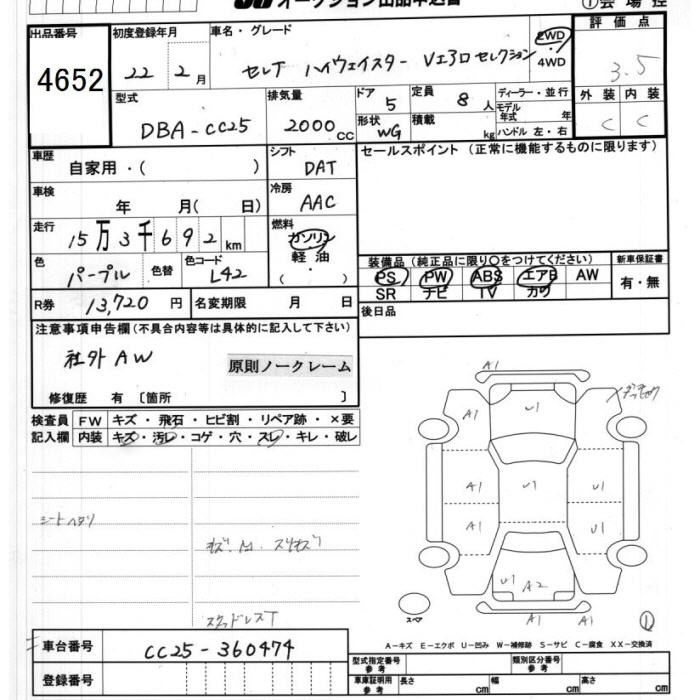 オークション出品申込書
①会場控
出品番号
4652
初度登録年月
22年 2月
車名・グレード
セレナ ハイウェイスター Vエアロセレクション
2WD
4WD
評価点
3.5
外装 内装
C C
型式
DBA-CC25
排気量
2000 CC
ドア
5
形状
WG
定員
8 人
積載
kg
ディーラー・並行
モデル年式 年
ハンドル 左・右
車歴
自家用・( )
シフト
DAT
セールスポイント (正常に機能するものに限ります)
車検
年 月( 日)
冷房
AAC
走行
15万3千692km
燃料
ガソリン
軽油
( ・ )
色
パープル
色替
色コード
L42
装備品 (純正品に限り○をつけてください)
PS PW ABS エアB AW
SR ナビ TV カワ
新車保証書
有・無
R券
13,720 円
名変期限 月 日
後日品
注意事項申告欄 (不具合内容等は具体的に記入して下さい)
社外 AW
原則ノークレーム
修復歴 有 〔箇所 〕
検査員記入欄
FW キズ・飛石・ヒビ割・リペア跡・×要
内装 キズ・汚レ・コゲ・穴・スレ・キレ・破レ
シートヘタリ
スタッドレスT
A1
A1 U1
A1 U1 U1
A1 U1
U1 A2
A1 A1
スペア
①
A-キズ E-エクボ U-凹み W-補修跡 S-サビ C-腐食 XX-交換済
車台番号
CC25-360474
登録番号
型式指定番号参考
類別区分番号参考
車庫証明用参考
長さ cm 幅 cm 高さ cm